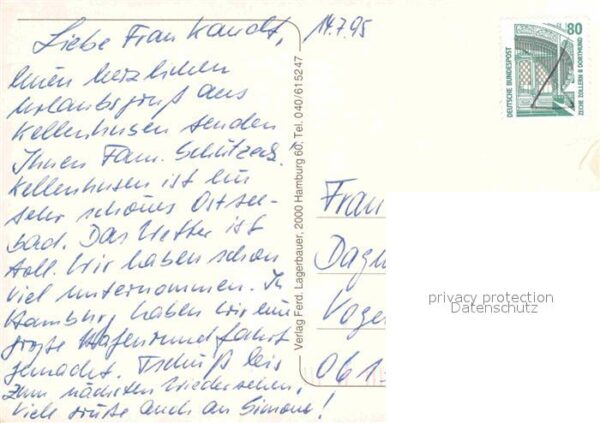 14.7.95
Liebe Frau Kandt,
einen herzlichen
Urlaubsgruß aus
Kellenhusen senden
Ihnen Fam.
Kellenhusen ist ein
sehr schönes Ostsee-
bad. Das Wetter ist
toll. Wir haben schon
viel unternommen. In
Hamburg haben wir eine
große Hafenrundfahrt
gemacht. Tschüß bis
zum nächsten Wiedersehen,
viele Grüße auch an Simone!
Verlag Ferd. Lagerbauer, 2000 Hamburg 60, Tel. 040/615247
DEUTSCHE BUNDESPOST
80
ZECHE ZOLLERN II DORTMUND
Frau
Dagm
Voge
061
privacy protection
Datenschutz